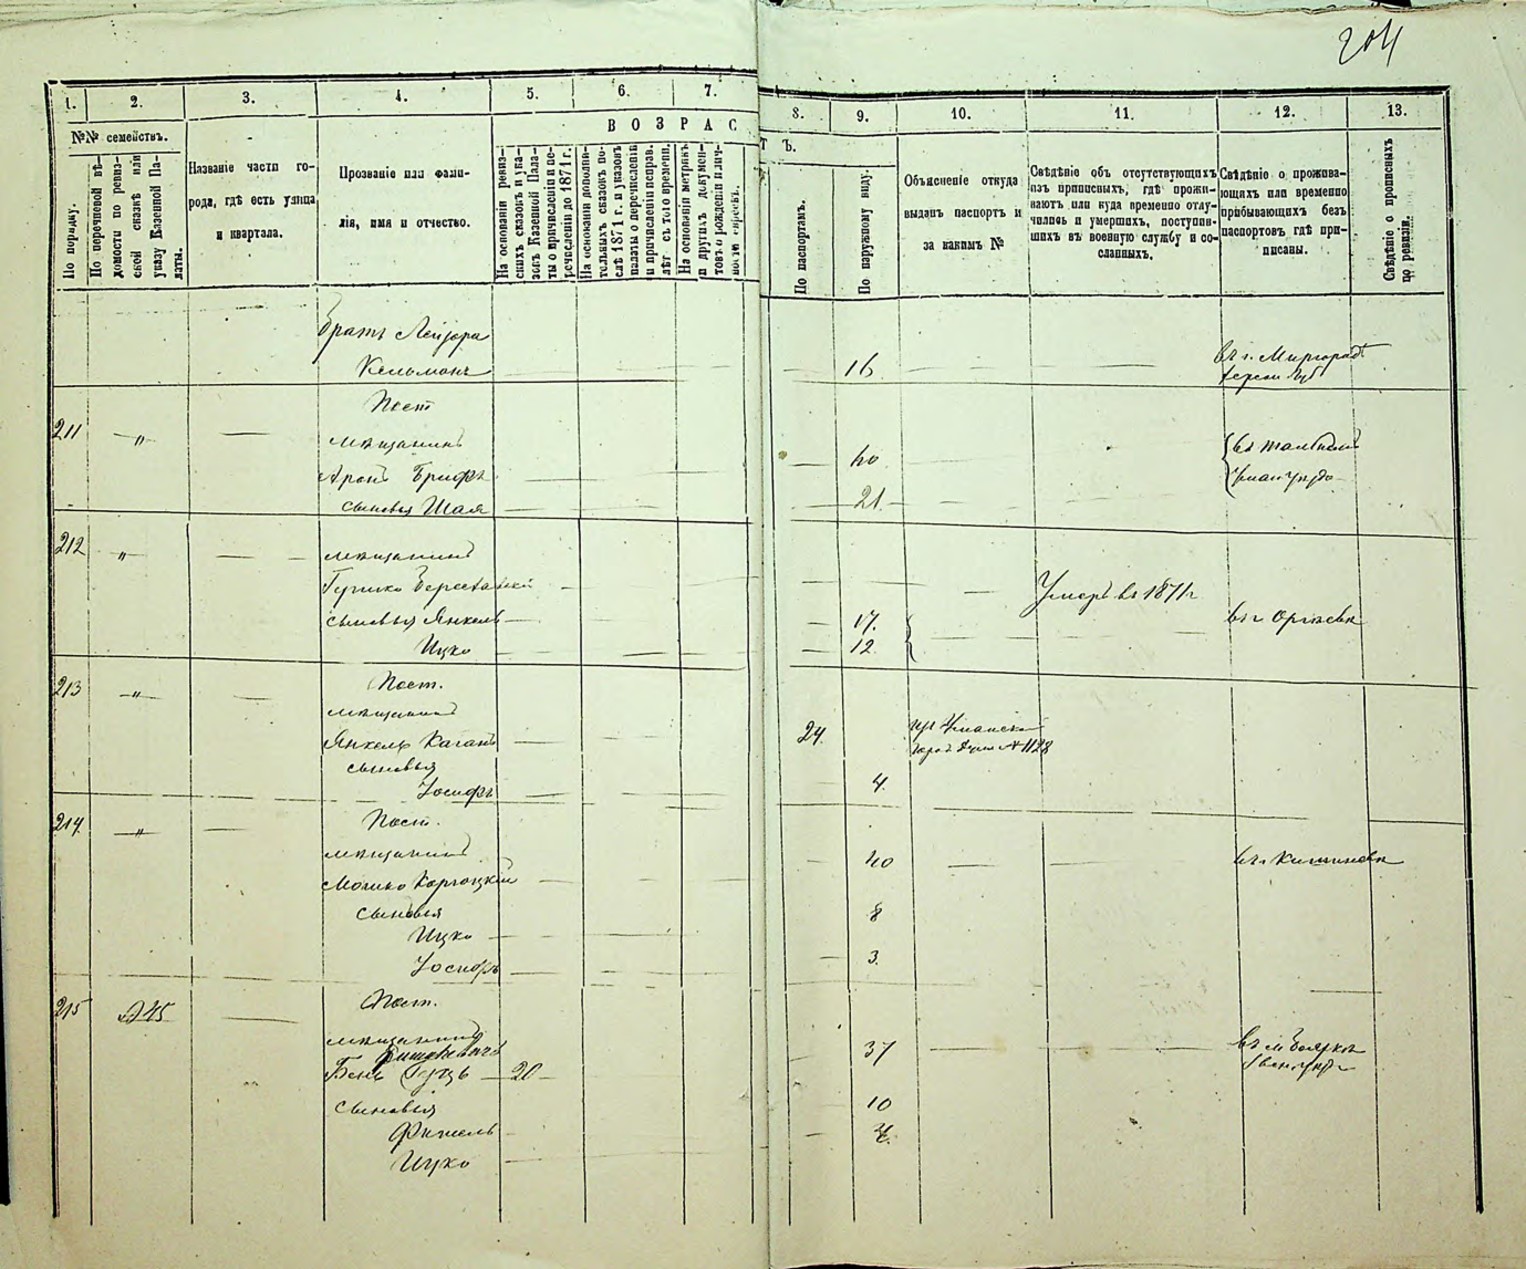 204
1. 2. 3. 4. 5. 6. 7. 8. 9. 10. 11. 12. 13.
№№ семействъ.
По порядку.
По перечневой вѣ-
домости по ревиз-
ской сказкѣ или
указу Казенной Па-
латы.
Названіе части го-
рода, гдѣ есть улица
и квартала.
Прозваніе или фами-
лія, имя и отчество.
ВОЗРАСТЪ.
На основаніи ревиз-
скихъ сказокъ и ука-
зовъ Казенной Пала-
ты о причисленіи и пе-
речисленіи до 1871 г.
На основаніи дополни-
тельныхъ сказокъ по-
слѣ 1871 г. и указовъ
палаты о перечисленіи
и причисленіи исправ.
лѣт съ того времени.
На основаніи метрикъ
и другихъ докумен-
товъ о рожденіи и лич-
ности евреевъ.
По паспортамъ.
По наружному виду.
Объясненіе откуда
выданъ паспортъ и
за какимъ №
Свѣдѣніе объ отсутствующихъ
изъ приписныхъ, гдѣ прожи-
ваютъ или куда временно отлу-
чились и умершихъ, поступив-
шихъ въ военную службу и со-
сланныхъ.
Свѣдѣніе о прожива-
ющихъ или временно
прибывающихъ безъ
паспортовъ гдѣ при-
писаны.
Свѣдѣніе о прописныхъ
по ревизіи.
Братъ Лейзора
Кельманъ 16 въ г. Миргородѣ
Пост
211 " мѣщанинъ
Аронъ 40
сыновья Шая 21
212 " мѣщанинъ
Гершко Умеръ въ 1871 г
сыновья Янкель 17. въ г Оргѣевѣ
Ицко 12
213 " Пост.
мѣщанинъ
Янкель Каганъ 24. № 1128
сыновья
Іосифъ 4.
214 " Пост.
мѣщанинъ 40 въ г Кишиневѣ
Мошко
сыновья 8
Ицко
Іосифъ 3.
215 Пост.
мѣщанинъ 37
Бень 20
сыновья 10
Фишель
Ицко